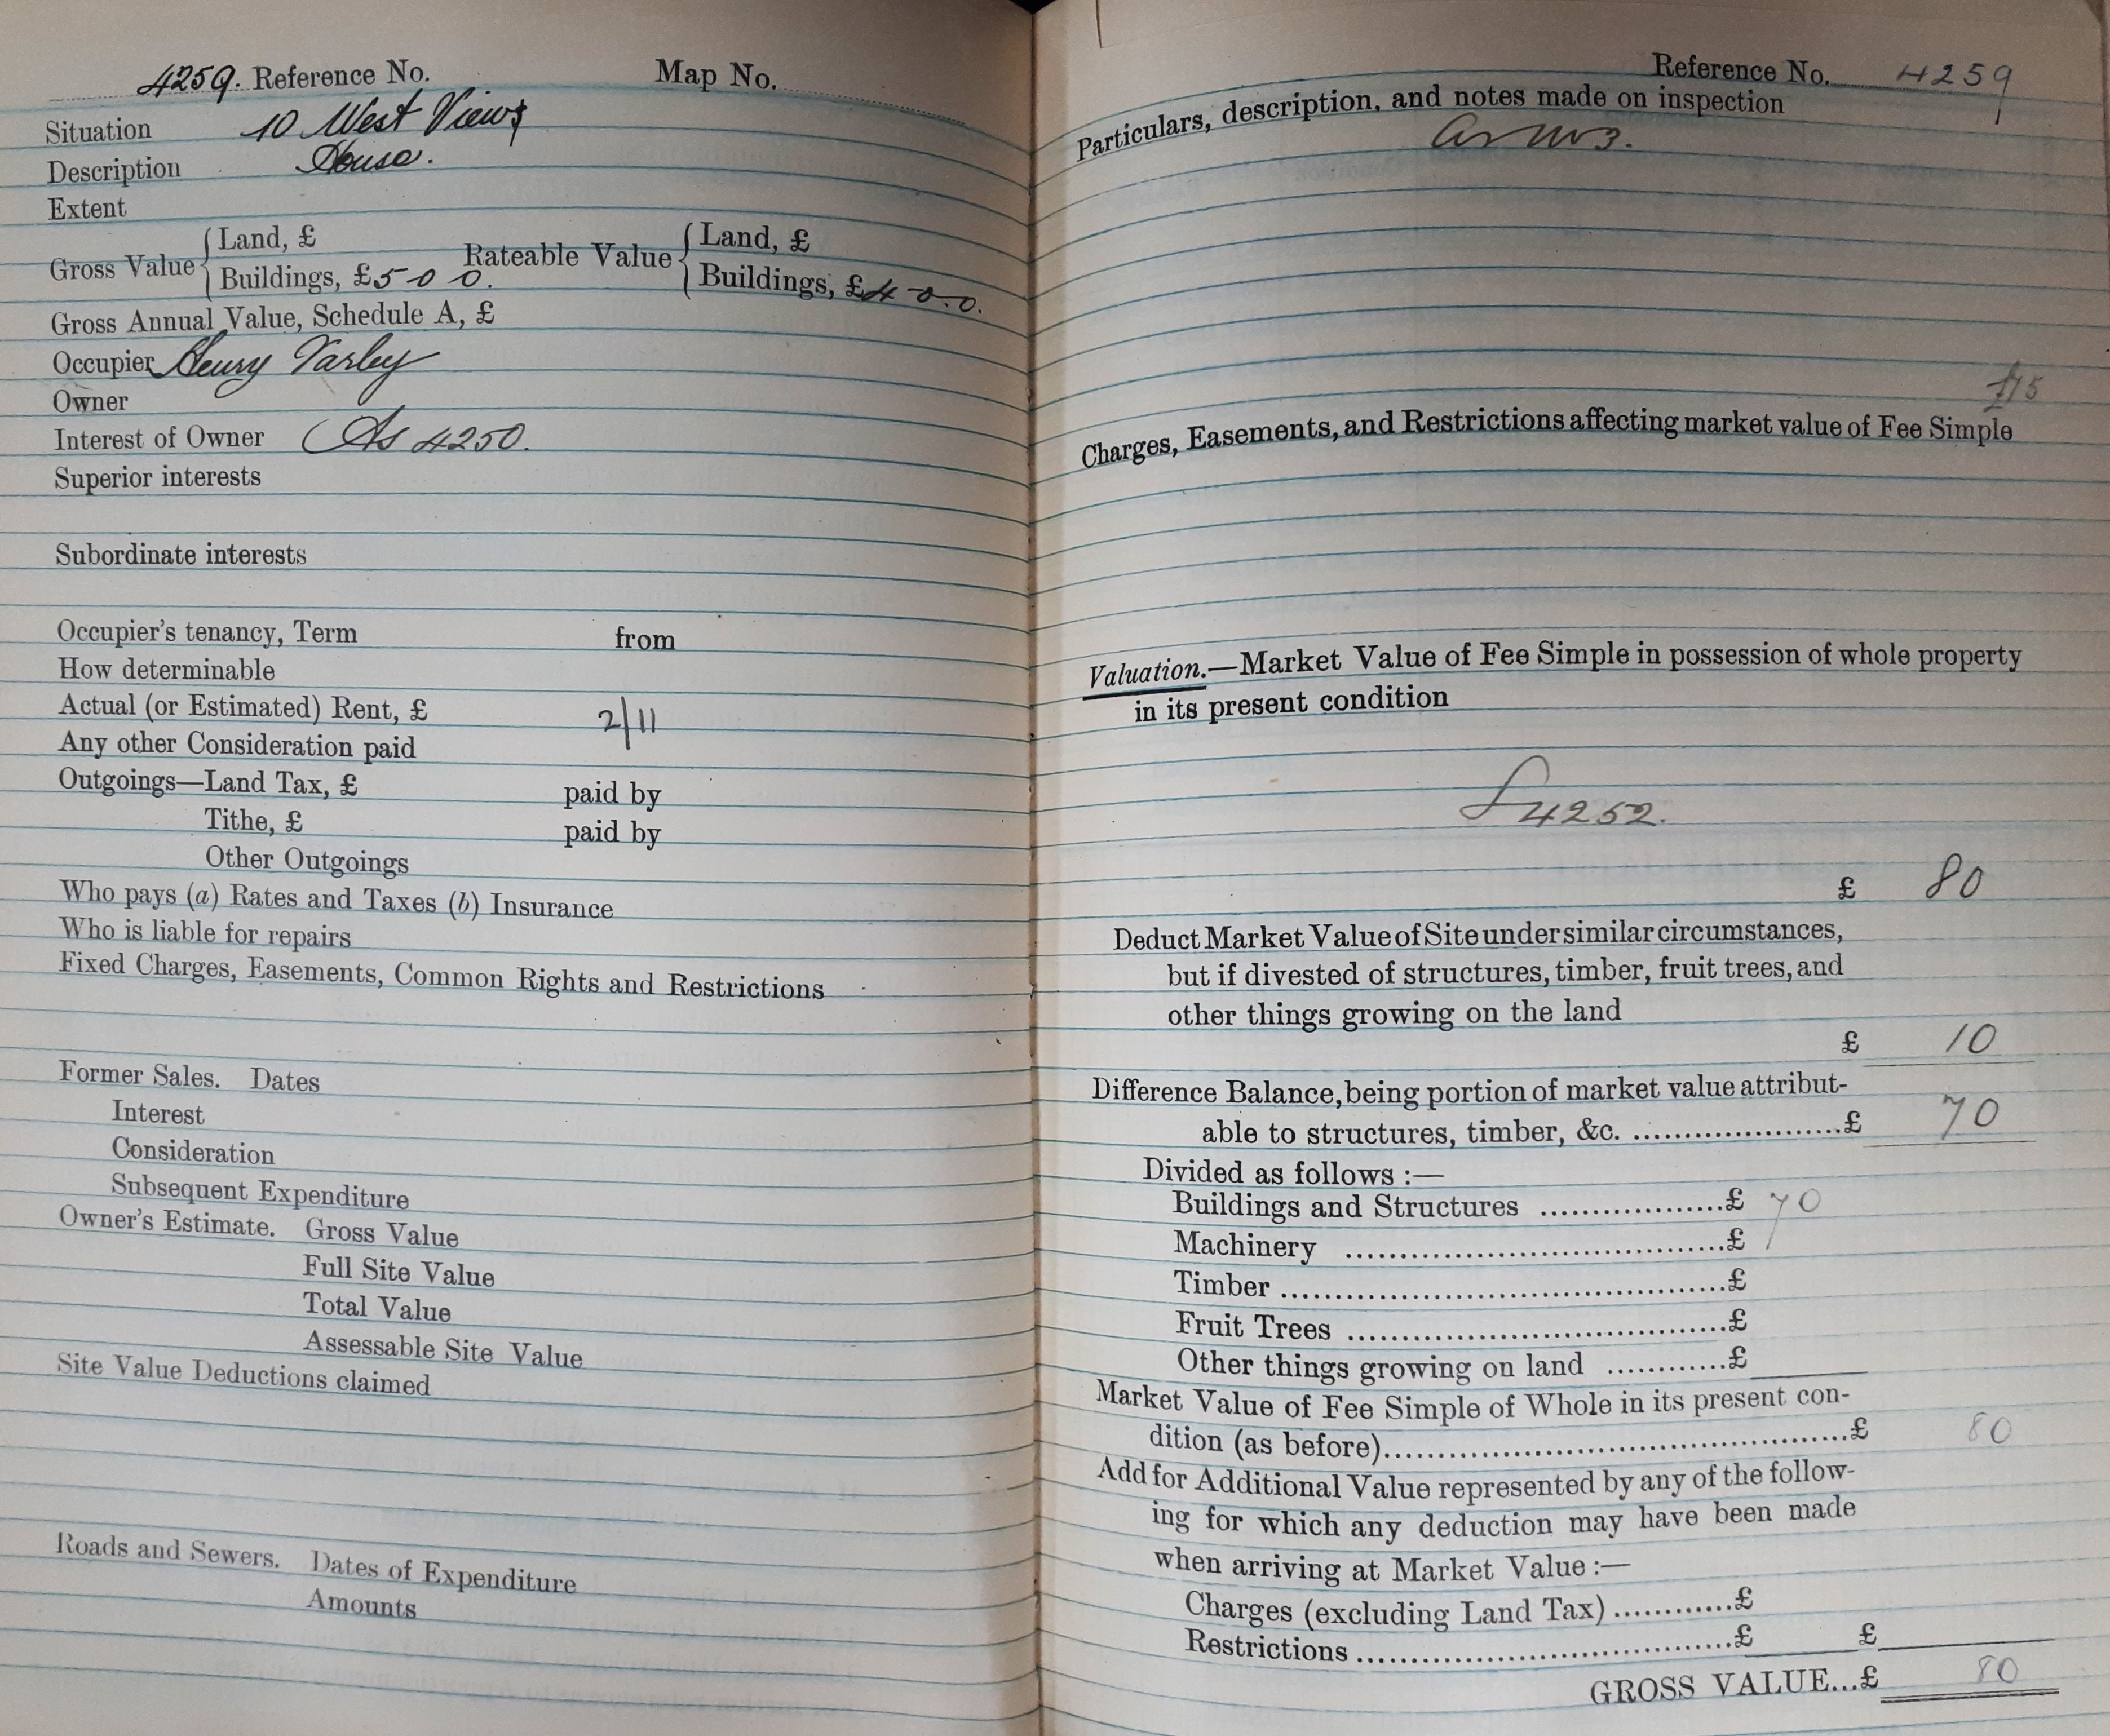 4259. Reference No. Map No.
Situation 10 West View
Description House.
Extent
Gross Value { Land, £ Rateable Value { Land, £
Buildings, £5-0 0. Buildings, £4-0.0.
Gross Annual Value, Schedule A, £
Occupier Henry Varley
Owner
Interest of Owner ( As 4250.
Superior interests
Subordinate interests
Occupier's tenancy, Term from
How determinable
Actual (or Estimated) Rent, £ 2/11
Any other Consideration paid
Outgoings—Land Tax, £ paid by
Tithe, £ paid by
Other Outgoings
Who pays (a) Rates and Taxes (b) Insurance
Who is liable for repairs
Fixed Charges, Easements, Common Rights and Restrictions
Former Sales. Dates
Interest
Consideration
Subsequent Expenditure
Owner's Estimate. Gross Value
Full Site Value
Total Value
Assessable Site Value
Site Value Deductions claimed
Roads and Sewers. Dates of Expenditure
Amounts
Reference No. 4259
Particulars, description, and notes made on inspection
Charges, Easements, and Restrictions affecting market value of Fee Simple
Valuation.—Market Value of Fee Simple in possession of whole property
in its present condition
4252.
£ 80
Deduct Market Value of Site under similar circumstances,
but if divested of structures, timber, fruit trees, and
other things growing on the land
£ 10
Difference Balance, being portion of market value attribut-
able to structures, timber, &c. ....................£ 70
Divided as follows :—
Buildings and Structures ..................£ 70
Machinery ......................................£
Timber ............................................£
Fruit Trees .....................................£
Other things growing on land ............£
Market Value of Fee Simple of Whole in its present con-
dition (as before)...............................................£ 80
Add for Additional Value represented by any of the follow-
ing for which any deduction may have been made
when arriving at Market Value :—
Charges (excluding Land Tax) ............£
Restrictions .....................................£ £
GROSS VALUE...£ 80